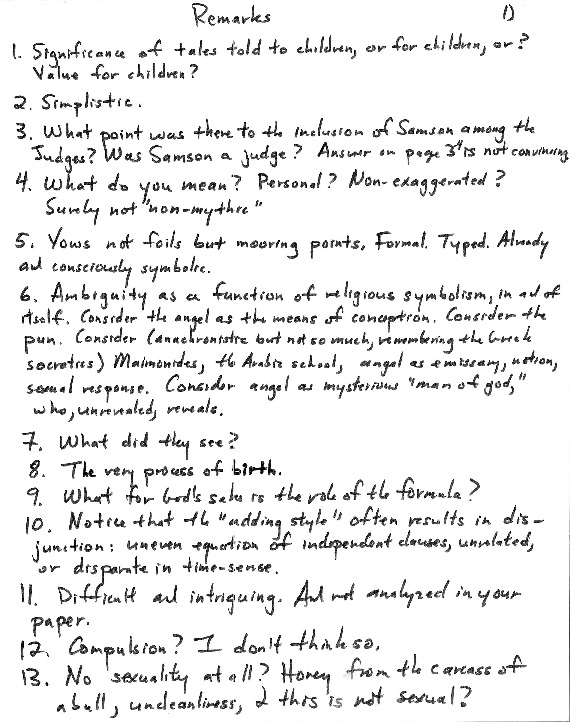 Remarks 1)
1. Significance of tales told to children, or for children, or?
Value for children?
2. Simplistic.
3. What point was there to the inclusion of Samson among the
Judges? Was Samson a judge? Answer on page 3 is not convincing
4. What do you mean? Personal? Non-exaggerated?
Surely not "non-mythic"
5. Vows not foils but mooring points. Formal. Typed. Already
and consciously symbolic.
6. Ambiguity as a function of religious symbolism, in and of
itself. Consider the angel as the means of conception. Consider the
pun. Consider (anachronistic but not so much, remembering the Greek
socratics) Maimonides, the Arabic school, angel as emissary, notion,
sexual response. Consider angel as mysterious "man of god,"
who, unrevealed, reveals.
7. What did they see?
8. The very process of birth.
9. What for God's sake is the role of the formula?
10. Notice that the "adding style" often results in dis-
junction: uneven equation of independent clauses, unrelated,
or disparate in time-sense.
11. Difficult and intriguing. And not analyzed in your
paper.
12. Compulsion? I don't think so.
13. No sexuality at all? Honey from the carcass of
a bull, uncleanliness, & this is not sexual?